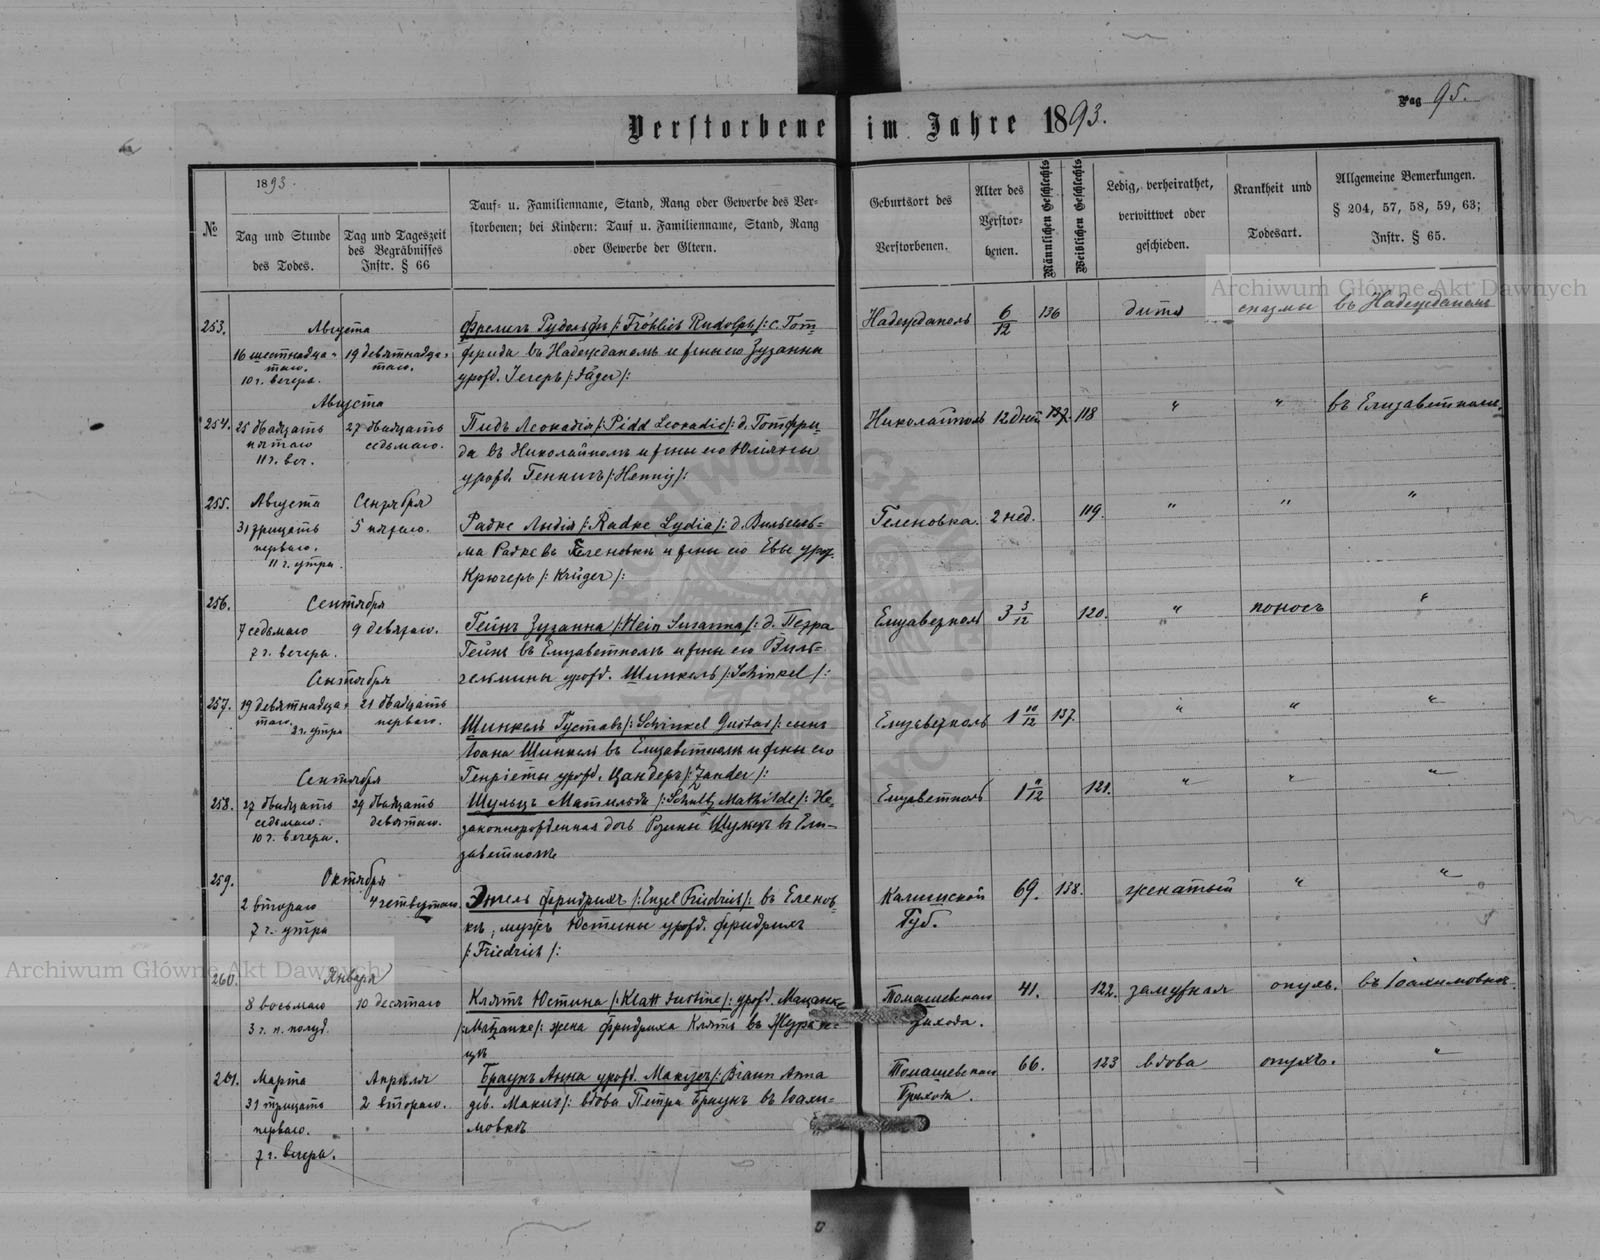 Pag 95.
Verstorbene im Jahre 1893.
№
1893.
Tag und Stunde
des Todes.
Tag und Tageszeit
des Begräbnisses
Instr. § 66
Tauf- u. Familienname, Stand, Rang oder Gewerbe des Ver-
storbenen; bei Kindern: Tauf u. Familienname, Stand, Rang
oder Gewerbe der Eltern.
Geburtsort des
Verstorbenen.
Alter des
Verstor-
benen.
Männlichen Geschlechts
Weiblichen Geschlechts
Ledig, verheirathet,
verwittwet oder
geschieden.
Krankheit und
Todesart.
Allgemeine Bemerkungen.
§ 204, 57, 58, 59, 63;
Instr. § 65.
Archiwum Główne Akt Dawnych
253.
Августа
16 шестнадца-
таго.
10 г. вечера.
19 девятнадца-
таго.
Фрелихъ Рудольфъ /: Fröhlich Rudolph /: с. Гот-
фрида въ Надеждаполь и жены его Зузанны
урожд. Іегеръ /: Jäger /:
Надеждаполь
6/12
136
дитя
спазмы
въ Надеждаполь
Августа
254.
25 двадцать
пятаго
11 г. веч.
27 двадцать
седьмаго.
Пидъ Леокадія /: Pidd Leokadie /: д. Готфри-
да въ Николайполь и жены его Юліяны
урожд. Геннигъ /: Hennig /:
Николайполь
12 дней
118
"
"
въ Елизаветполь.
255.
Августа
31 трицать
перваго.
11 г. утра.
Сентября
5 пятаго.
Радке Лидія /: Radke Lydia /: д. Вильгель-
ма Радке въ Геленовкъ и жены его Евы урож.
Крюгеръ /: Krüger /:
Геленовка.
2 нед.
119.
"
"
"
256.
Сентября
7 седьмаго
7 г. вечера.
9 девятаго.
Гейнъ Зузанна /: Hein Susanna /: д. Петра
Гейнъ въ Елизаветполь и жены его Виль-
гельмины урожд. Шинкель /: Schinkel /:
Елизаветполь
3 3/12
120.
"
поносъ
"
Сентября
257.
19 девятнадца-
таго.
2 г. утра
21 двадцать
перваго.
Шинкель Густавъ /: Schinkel Gustav /: сынъ
Іоана Шинкель въ Елизаветполь и жены его
Генріеты урожд. Цандеръ /: Zander /:
Елизаветполь
1 10/12
137.
"
"
"
Сентября
258.
27 двадцать
седьмаго.
10 г. вечера.
29 двадцать
девятаго.
Шульцъ Матильда /: Schultz Mathilde /: Не-
законнорожденная дочь Розины Шульцъ въ Ели-
заветполь
Елизаветполь
121.
"
"
"
259.
Октября
2 втораго
7 г. утра
4 четвертаго.
Энгель Фридрихъ /: Engel Friedrich /: въ Еленов-
къ, мужъ Юстины урожд. Фридрихъ
/: Friedrich /:
Калишской
Губ.
69.
138.
женатый
"
"
260.
Января
8 восьмаго
3 г. п. полуд.
10 десятаго
Клятъ Юстина /: Klatt Justine /: урожд. Маценке
/: Matzanke /: жена Фридриха Клятъ въ Журави-
цъ
Томашевскаго
прихода.
41.
122.
замужная
опухъ.
въ Іоахимовкъ.
261.
Марта
31 трицать
перваго.
7 г. вечера.
Апрѣля
2 втораго.
Браунъ Анна урожд. Макусъ /: Braun Anna
вдова Петра Браунъ въ Іоахи-
мовкъ
Томашевскаго
Прихода.
66.
123
вдова
опухъ.
"
Archiwum Główne Akt Dawnych